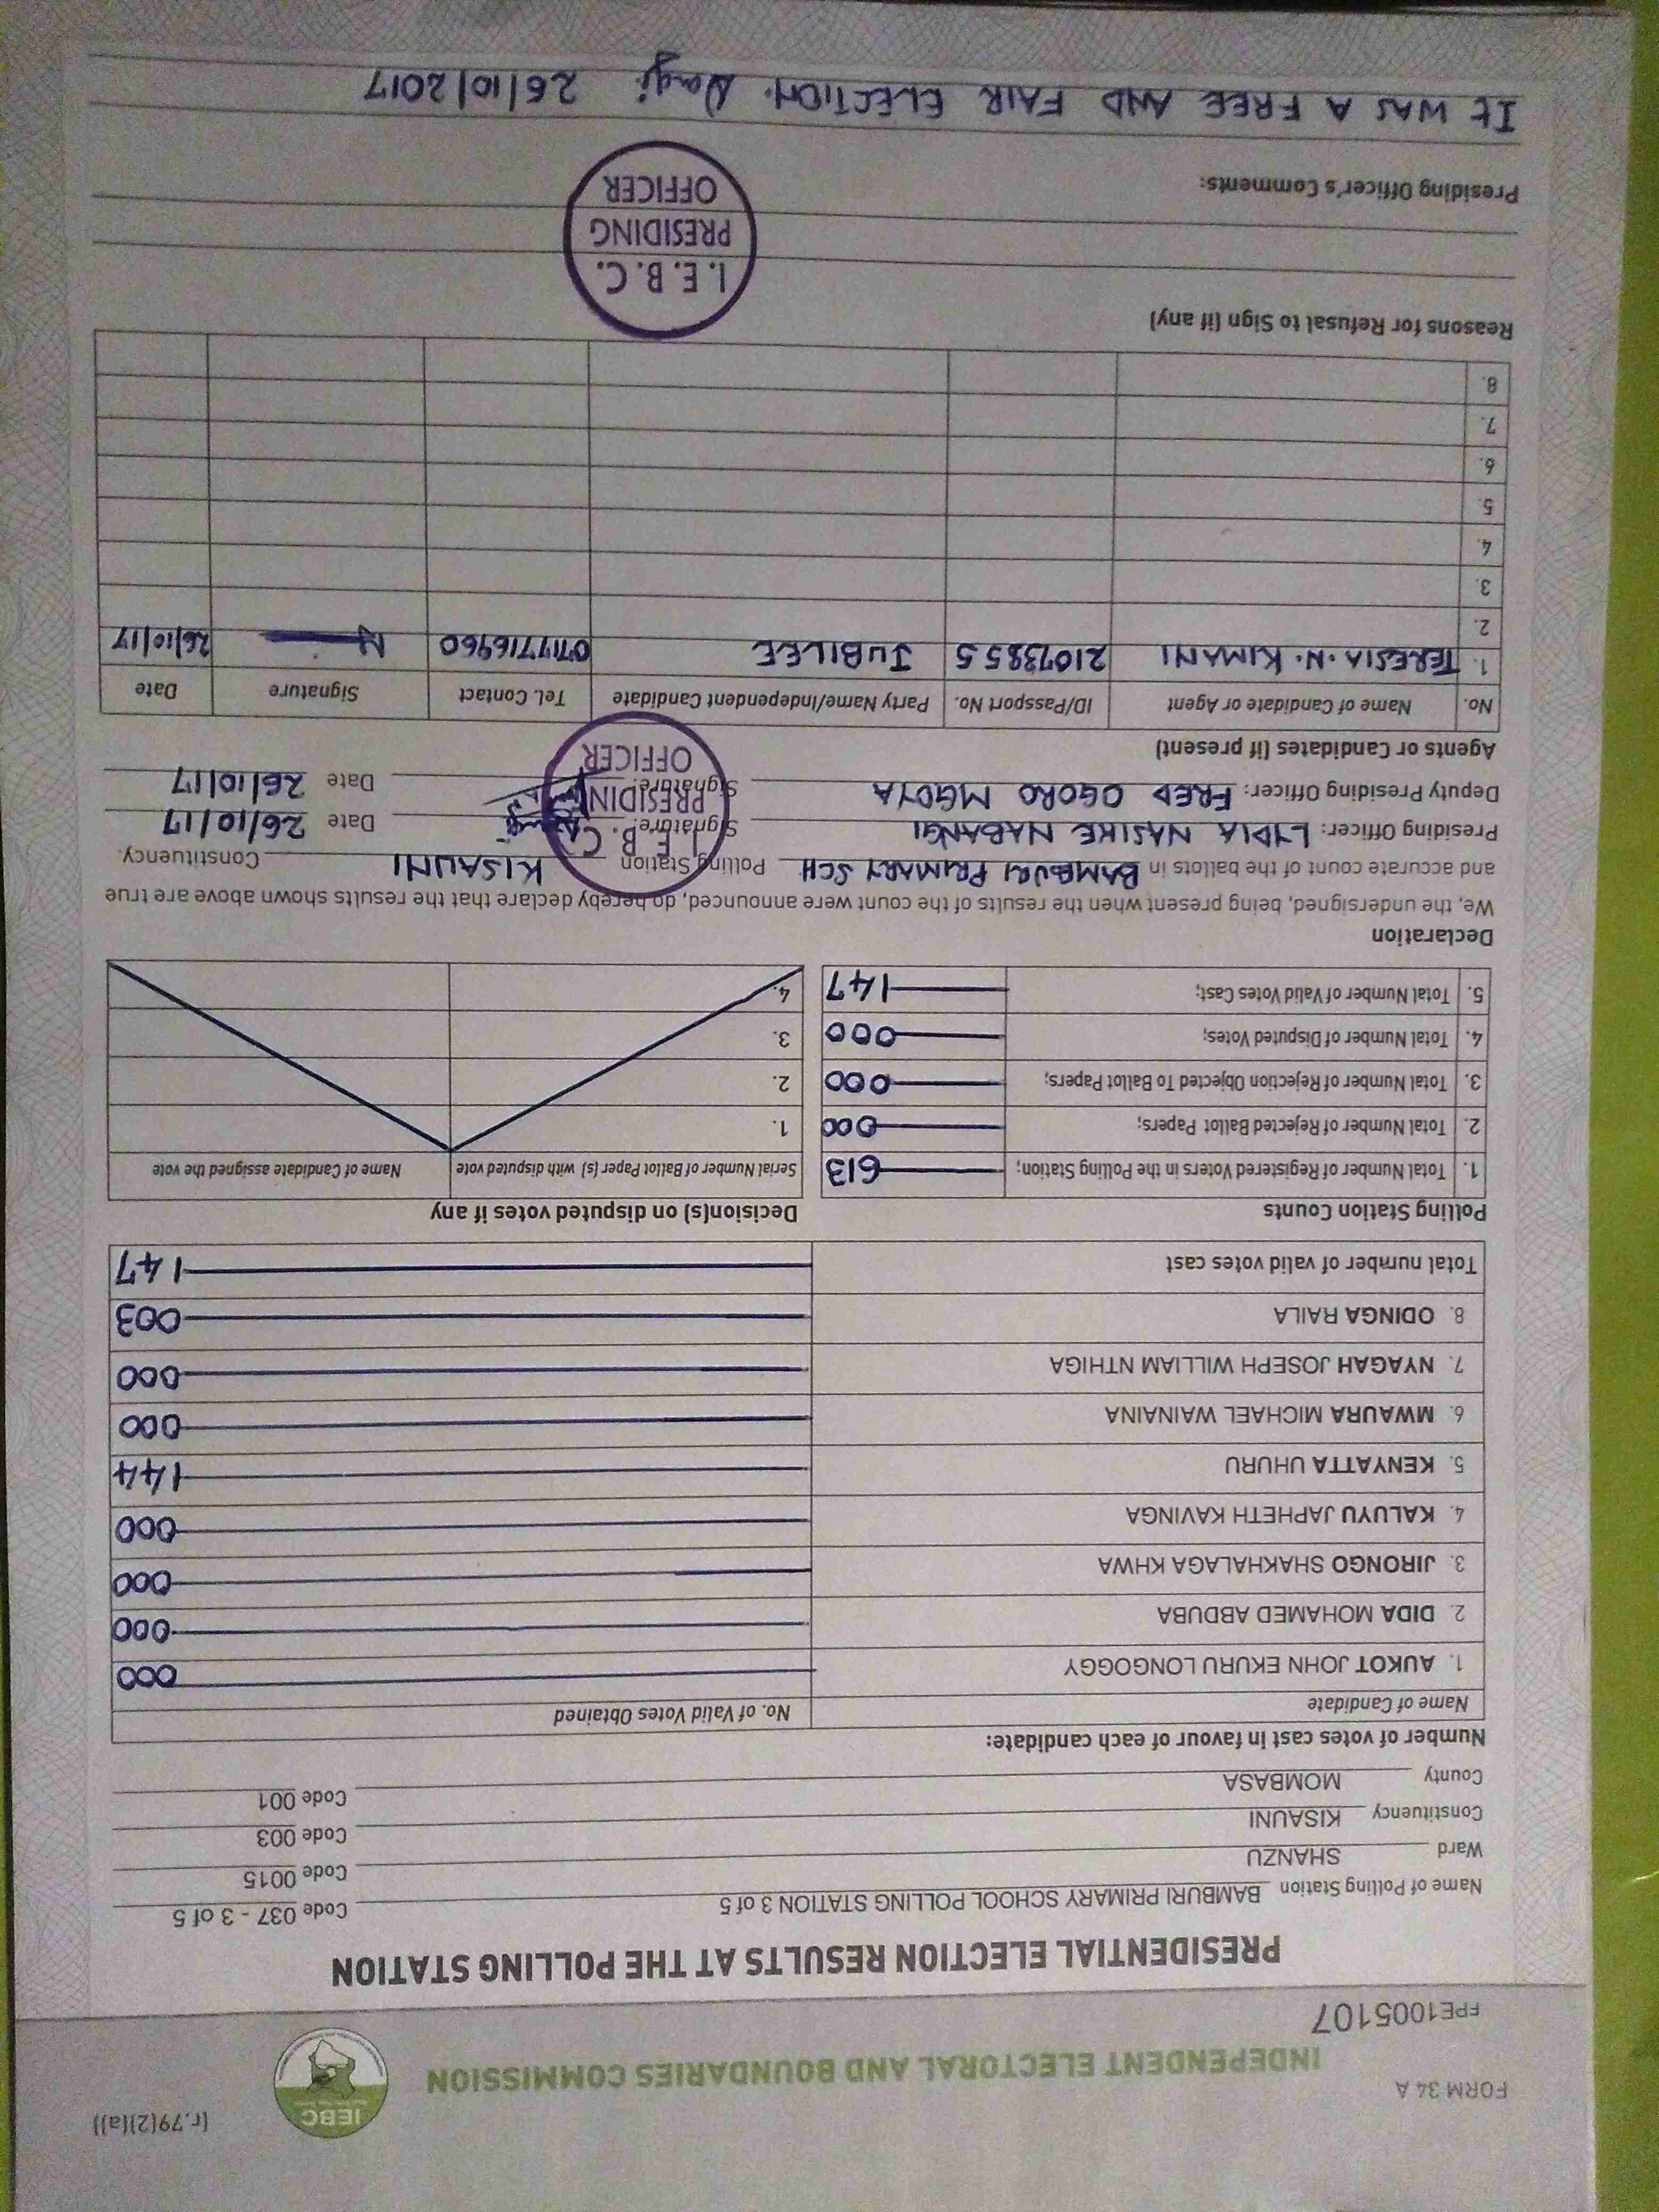 FORM 34 A
(r.79(2)(a))
IEBC
INDEPENDENT ELECTORAL AND BOUNDARIES COMMISSION
FPE1005107
PRESIDENTIAL ELECTION RESULTS AT THE POLLING STATION
Name of Polling Station BAMBURI PRIMARY SCHOOL POLLING STATION 3 of 5 Code 037 - 3 of 5
Ward SHANZU Code 0015
Constituency KISAUNI Code 003
County MOMBASA Code 001
Number of votes cast in favour of each candidate:
Name of Candidate No. of Valid Votes Obtained
1. AUKOT JOHN EKURU LONGOGGY 000
2. DIDA MOHAMED ABDUBA 000
3. JIRONGO SHAKHALAGA KHWA 000
4. KALUYU JAPHETH KAVINGA 000
5. KENYATTA UHURU 144
6. MWAURA MICHAEL WAINAINA 000
7. NYAGAH JOSEPH WILLIAM NTHIGA 000
8. ODINGA RAILA 003
Total number of valid votes cast 147
Polling Station Counts
1. Total Number of Registered Voters in the Polling Station; 613
2. Total Number of Rejected Ballot Papers; 000
3. Total Number of Rejection Objected To Ballot Papers; 000
4. Total Number of Disputed Votes; 000
5. Total Number of Valid Votes Cast; 147
Decision(s) on disputed votes if any
Serial Number of Ballot Paper (s) with disputed vote Name of Candidate assigned the vote
1.
2.
3.
4.
Declaration
We, the undersigned, being present when the results of the count were announced, do hereby declare that the results shown above are true
and accurate count of the ballots in BAMBURI PRIMARY SCH Polling Station KISAUNI Constituency.
Presiding Officer: LYDIA NASIKE NABANGI Signature: Date 26/10/17
Deputy Presiding Officer: FRED OGORO MGOYA Signature: Date 26/10/17
I. E. B. C.
PRESIDING
OFFICER
Agents or Candidates (if present)
No. Name of Candidate or Agent ID/Passport No. Party Name/Independent Candidate Tel. Contact Signature Date
1. TERESIA .N. KIMANI 21073855 JUBILEE 0717716960 26/10/17
2.
3.
4.
5.
6.
7.
8.
Reasons for Refusal to Sign (if any)
I. E. B. C.
PRESIDING
OFFICER
Presiding Officer's Comments:
It WAS A FREE AND FAIR ELECTION. 26/10/2017